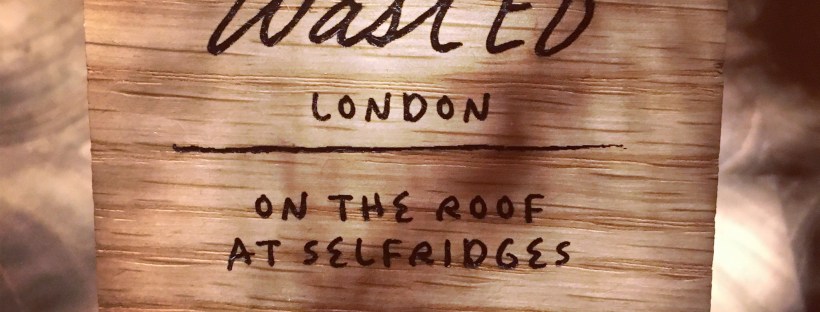 WastED
LONDON
ON THE ROOF
AT SELFRIDGES